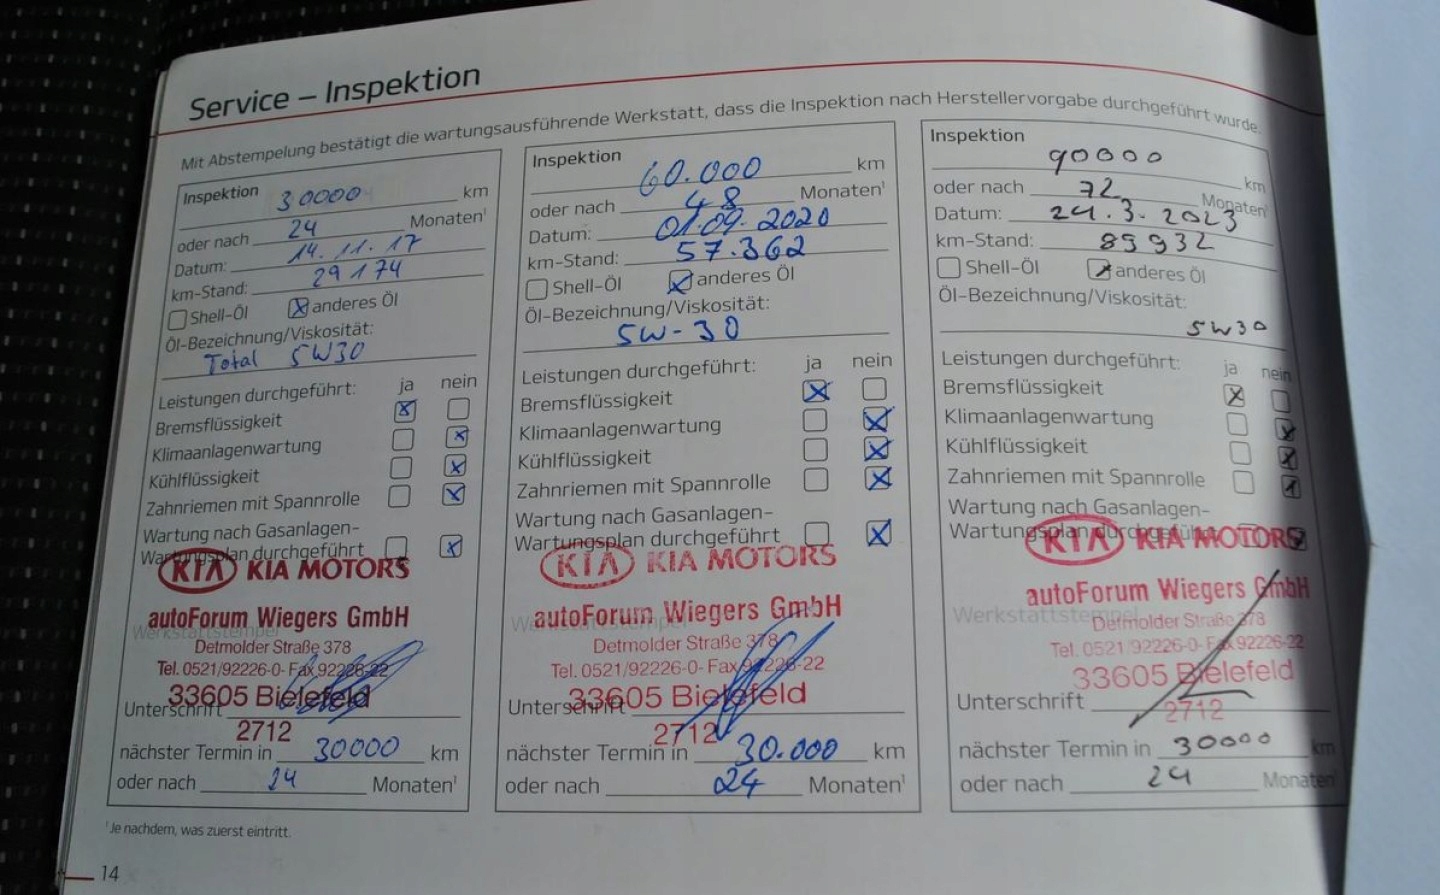 Service – Inspektion
Mit Abstempelung bestätigt die wartungsausführende Werkstatt, dass die Inspektion nach Herstellervorgabe durchgeführt wurde.
Inspektion 30000 km
oder nach 24 Monaten¹
Datum: 14.11.17
km-Stand: 29174
Shell-Öl anderes Öl
Öl-Bezeichnung/Viskosität:
Total 5W30
Leistungen durchgeführt: ja nein
Bremsflüssigkeit
Klimaanlagenwartung
Kühlflüssigkeit
Zahnriemen mit Spannrolle
Wartung nach Gasanlagen-
Wartungsplan durchgeführt
KIA KIA MOTORS
autoForum Wiegers GmbH
Werkstattstempel
Detmolder Straße 378
Tel. 0521/92226-0- Fax 92226-22
33605 Bielefeld
Unterschrift
2712
nächster Termin in 30000 km
oder nach 24 Monaten¹
Inspektion 60.000 km
oder nach 48 Monaten¹
Datum: 01.09.2020
km-Stand: 57.362
Shell-Öl anderes Öl
Öl-Bezeichnung/Viskosität:
5W-30
Leistungen durchgeführt: ja nein
Bremsflüssigkeit
Klimaanlagenwartung
Kühlflüssigkeit
Zahnriemen mit Spannrolle
Wartung nach Gasanlagen-
Wartungsplan durchgeführt
KIA KIA MOTORS
autoForum Wiegers GmbH
Werkstattstempel
Detmolder Straße 378
Tel. 0521/92226-0- Fax 92226-22
33605 Bielefeld
Unterschrift
2712
nächster Termin in 30.000 km
oder nach 24 Monaten¹
Inspektion 90000 km
oder nach 72 Monaten¹
Datum: 24.3.2023
km-Stand: 89932
Shell-Öl anderes Öl
Öl-Bezeichnung/Viskosität:
5W30
Leistungen durchgeführt: ja nein
Bremsflüssigkeit
Klimaanlagenwartung
Kühlflüssigkeit
Zahnriemen mit Spannrolle
Wartung nach Gasanlagen-
Wartungsplan durchgeführt
KIA KIA MOTORS
autoForum Wiegers GmbH
Werkstattstempel
Detmolder Straße 378
Tel. 0521/92226-0- Fax 92226-22
33605 Bielefeld
Unterschrift
2712
nächster Termin in 30000 km
oder nach 24 Monaten¹
¹Je nachdem, was zuerst eintritt.
14